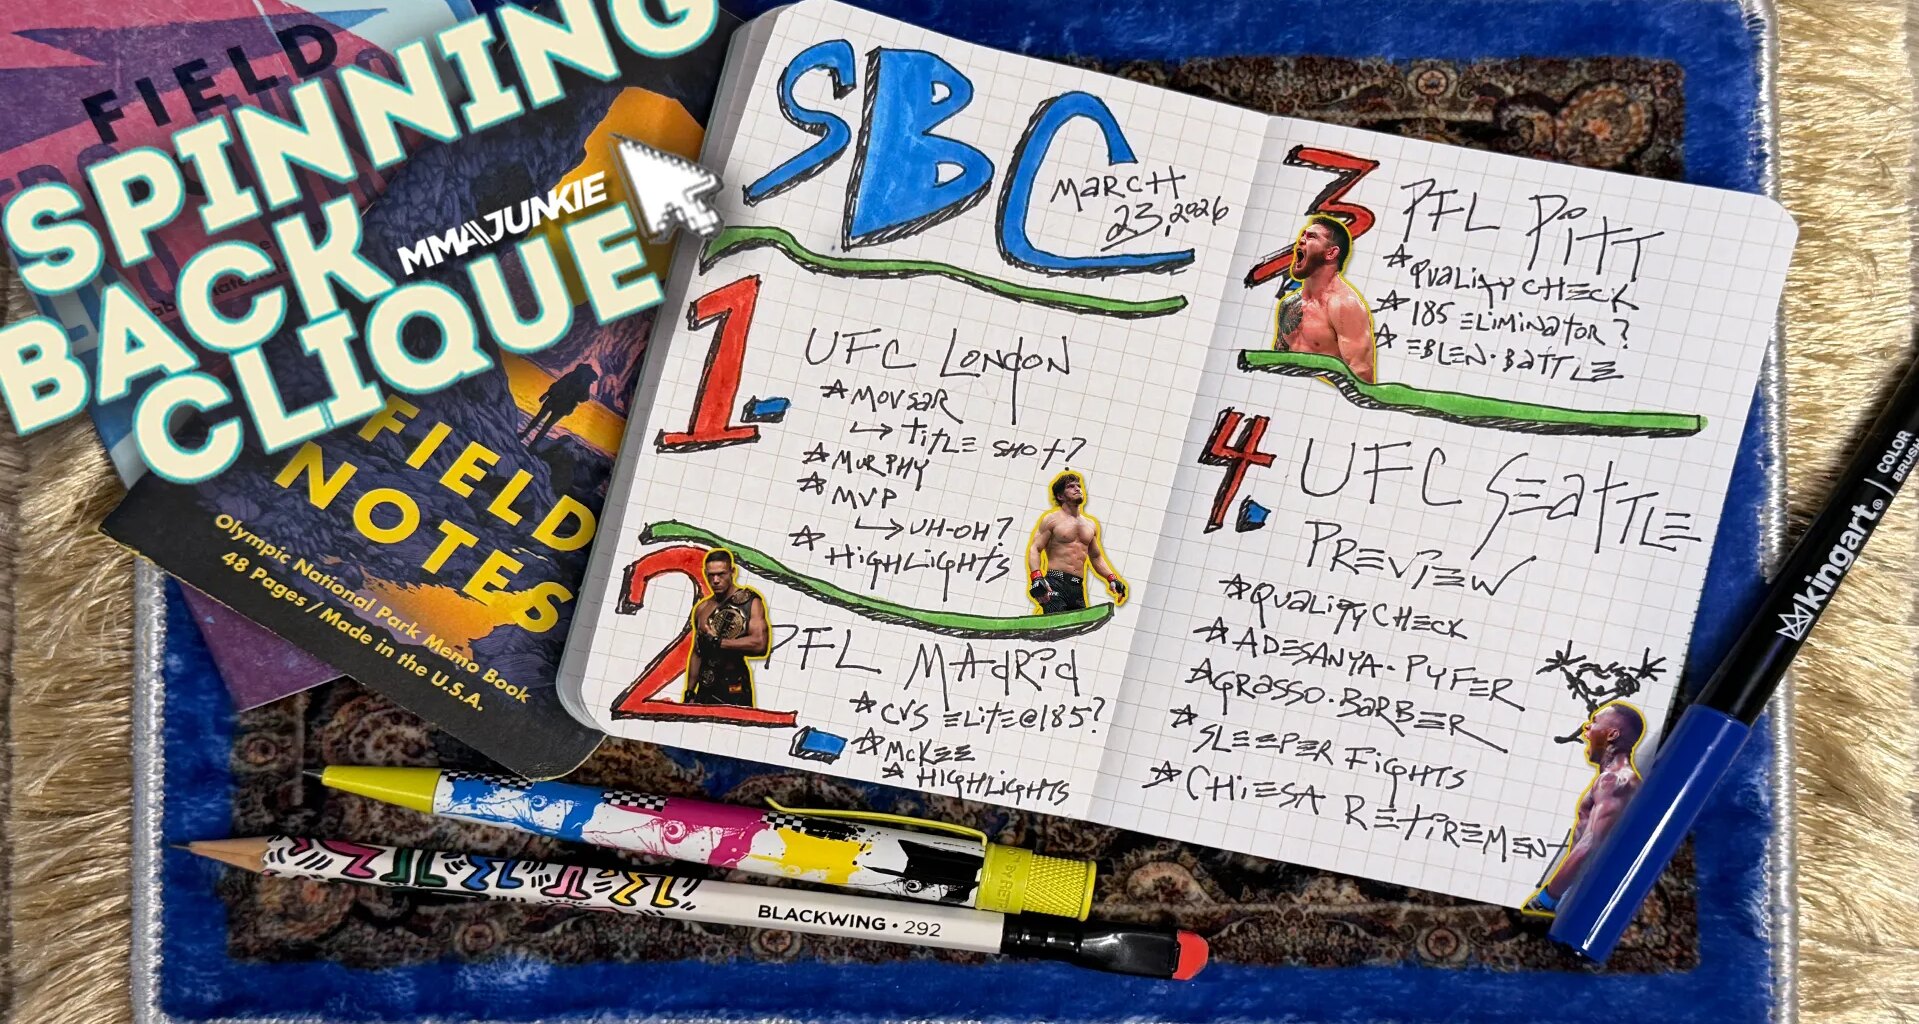 FIELD
SPINNING
BACK
CLIQUE
MMA JUNKIE
FIELD
NOTES
Olympic National Park Memo Book
48 Pages / Made in the U.S.A.
SBC
March
23, 2026
1.
UFC London
Movsar
Title shot?
Murphy
MVP
UH-OH?
Highlights
2.
PFL Madrid
CVS Elite@185?
McKee
Highlights
3.
PFL Pitt
Quality Check
185 Eliminator?
Eblen · Battle
4.
UFC Seattle
Preview
Quality Check
Adesanya · Pyfer
Grasso · Barber
Sleeper Fights
Chiesa Retirement
BLACKWING • 292
kingart® COLOR